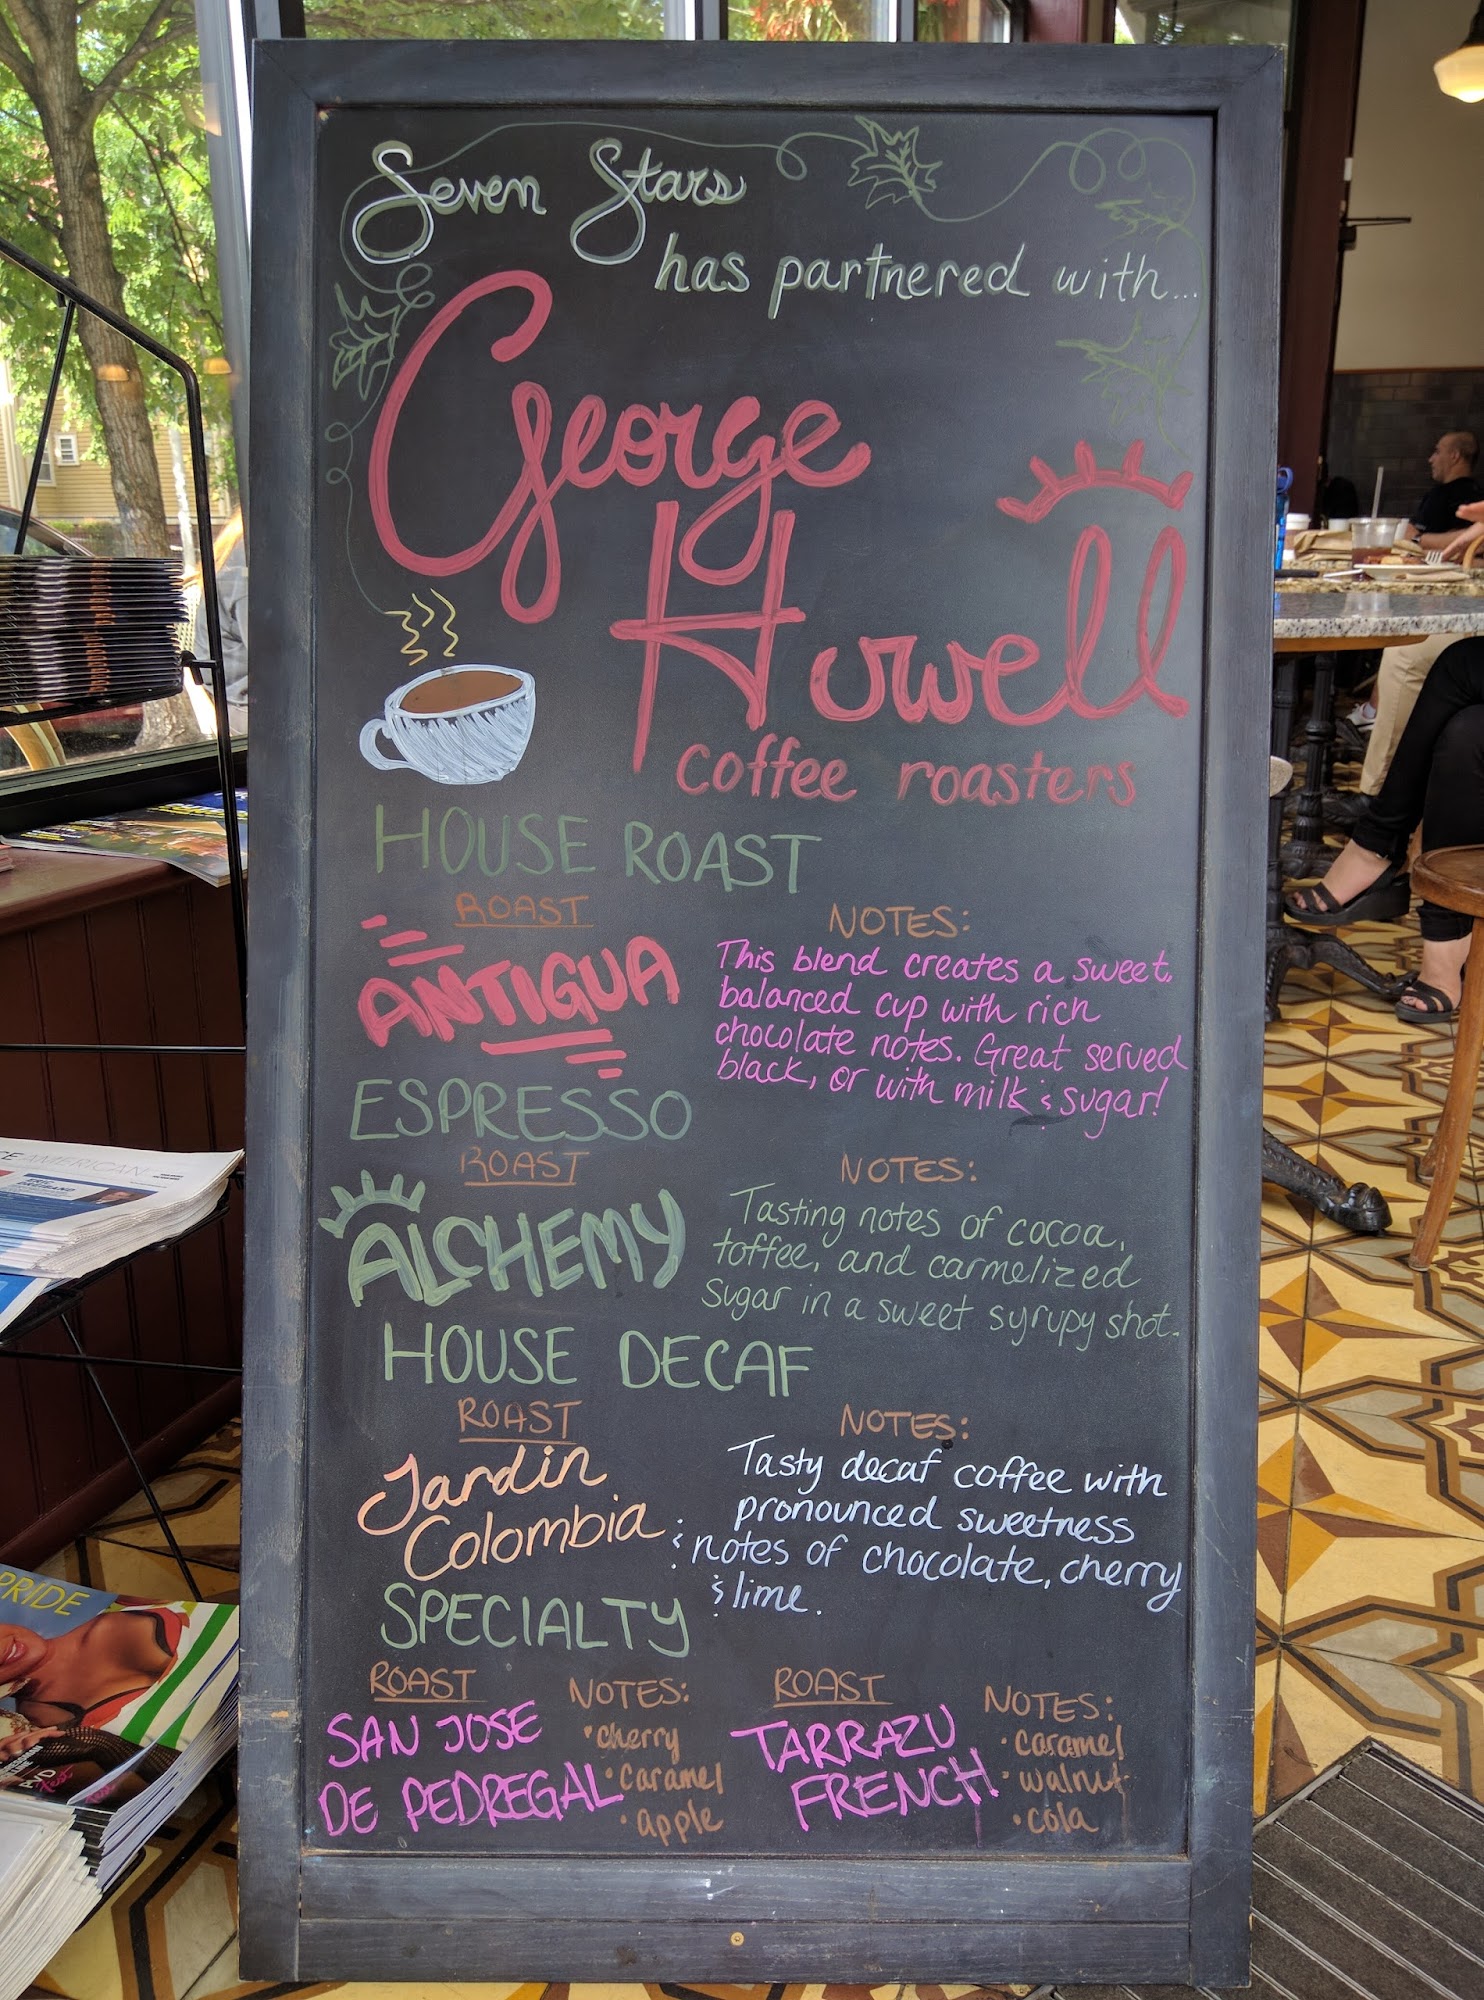 Seven Stars
has partnered with...
George
Howell
coffee roasters
HOUSE ROAST
ROAST
ANTIGUA
NOTES:
This blend creates a sweet,
balanced cup with rich
chocolate notes. Great served
black, or with milk & sugar!
ESPRESSO
ROAST
ALCHEMY
NOTES:
Tasting notes of cocoa,
toffee, and carmelized
sugar in a sweet syrupy shot.
HOUSE DECAF
ROAST
Jardin
Colombia
NOTES:
Tasty decaf coffee with
pronounced sweetness
& notes of chocolate, cherry
& lime.
SPECIALTY
ROAST
SAN JOSE
DE PEDREGAL
NOTES:
• cherry
• caramel
• apple
ROAST
TARRAZU
FRENCH
NOTES:
• caramel
• walnut
• cola
AMERICAN
PRIDE
PVD
Fest